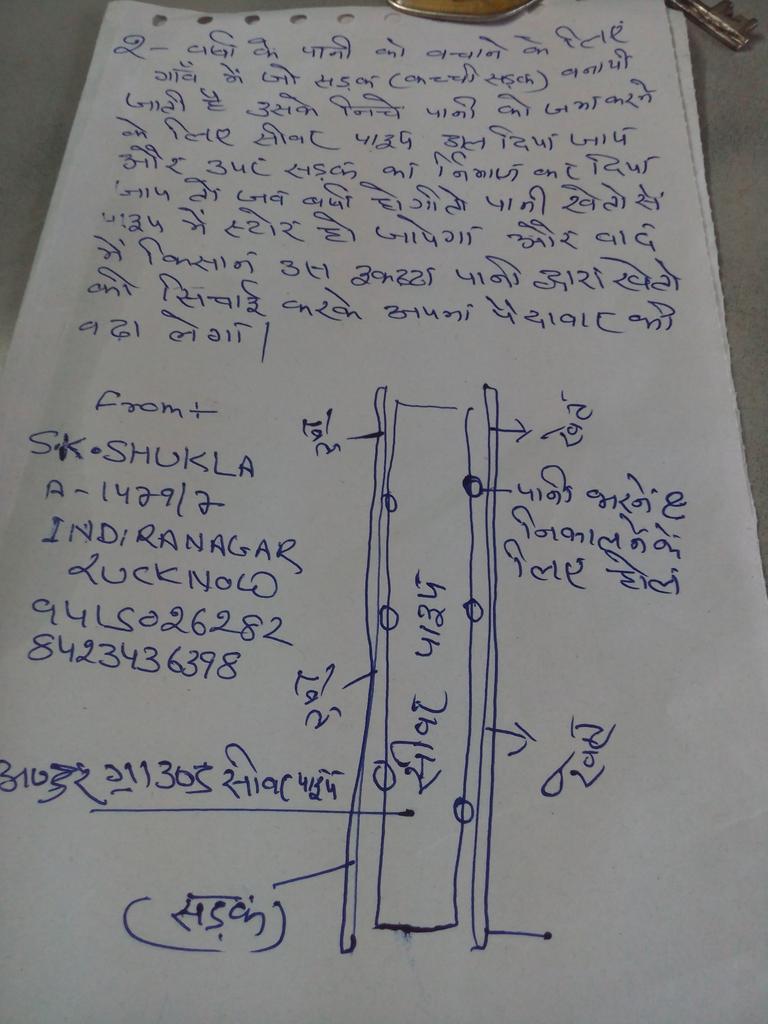 2- वर्षा के पानी को बचाने के लिए
गाँव में जो सड़क (कच्ची सड़क) बनायी
जाती है उसके निचे पानी को जमा करने
के लिए सीवर पाइप डाल दिया जाय
और उपर सड़क का निर्माण कर दिया
जाय तो जब वर्षा होगी तो पानी खेतो से
पाइप में स्टोर हो जायेगा और बाद
में किसान उस इकट्ठा पानी द्वारा खेतो
की सिचाई करके अपना पैदावार को
बढा लेगा|
From:-
S.K.SHUKLA
A-1479/7
INDIRANAGAR
LUCKNOW
9415026282
8423436398
खेत
खेत
पानी भरने व
निकालने के
लिए होल
सीवर पाइप
खेत
खेत
अण्डर ग्राउण्ड सीवर पाइप
(सड़क)